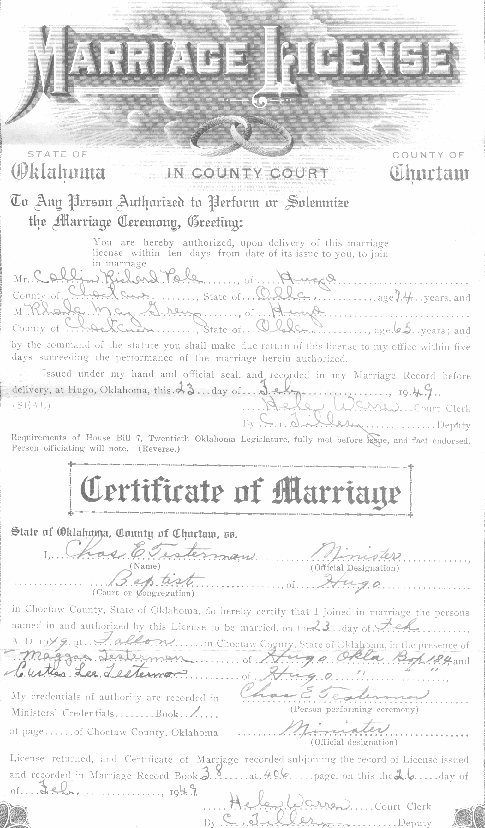 MARRIAGE LICENSE
STATE OF
Oklahoma
IN COUNTY COURT
COUNTY OF
Choctaw
To Any Person Authorized to Perform or Solemnize
the Marriage Ceremony, Greeting:
You are hereby authorized, upon delivery of this marriage
license within ten days from date of its issue to you, to join
in marriage
Mr. Collin Richard Pate, of Hugo
County of Choctaw, State of Okla age 74 years, and
M Rhoda May, of Hugo
County of Choctaw, State of Okla age 65 years; and
by the command of the statute you shall make due return of this license to my office within five
days succeeding the performance of the marriage herein authorized.
Issued under my hand and official seal, and recorded in my Marriage Record before
delivery, at Hugo, Oklahoma, this 23 day of Feby, 1949
(SEAL) Helen Warren Court Clerk
By C. Deputy
Requirements of House Bill 7, Twentieth Oklahoma Legislature, fully met before issue, and fact endorsed.
Person officiating will note. (Reverse.)
Certificate of Marriage
State of Oklahoma, County of Choctaw, ss.
I, Chas E Testerman Minister,
(Name) (Official Designation)
Baptist, of Hugo
(Court or Congregation)
in Choctaw County, State of Oklahoma, do hereby certify that I joined in marriage the persons
named in and authorized by this License to be married, on the 23 day of Feb
A. D. 1949 at in Choctaw County, State of Oklahoma, in the presence of
Maggae Testerman of Hugo Okla Box 184 and
Curtis Lee Testerman of Hugo " "
My credentials of authority are recorded in Chas E Testerman
(Person performing ceremony)
Ministers' Credentials Book 1
at page of Choctaw County, Oklahoma Minister
(Official designation)
License returned, and Certificate of Marriage recorded subjoining the record of License issued
and recorded in Marriage Record Book 38 at 406 page, on this the 26 day of
of Feb, 1949
Helen Warren Court Clerk
By C. Deputy